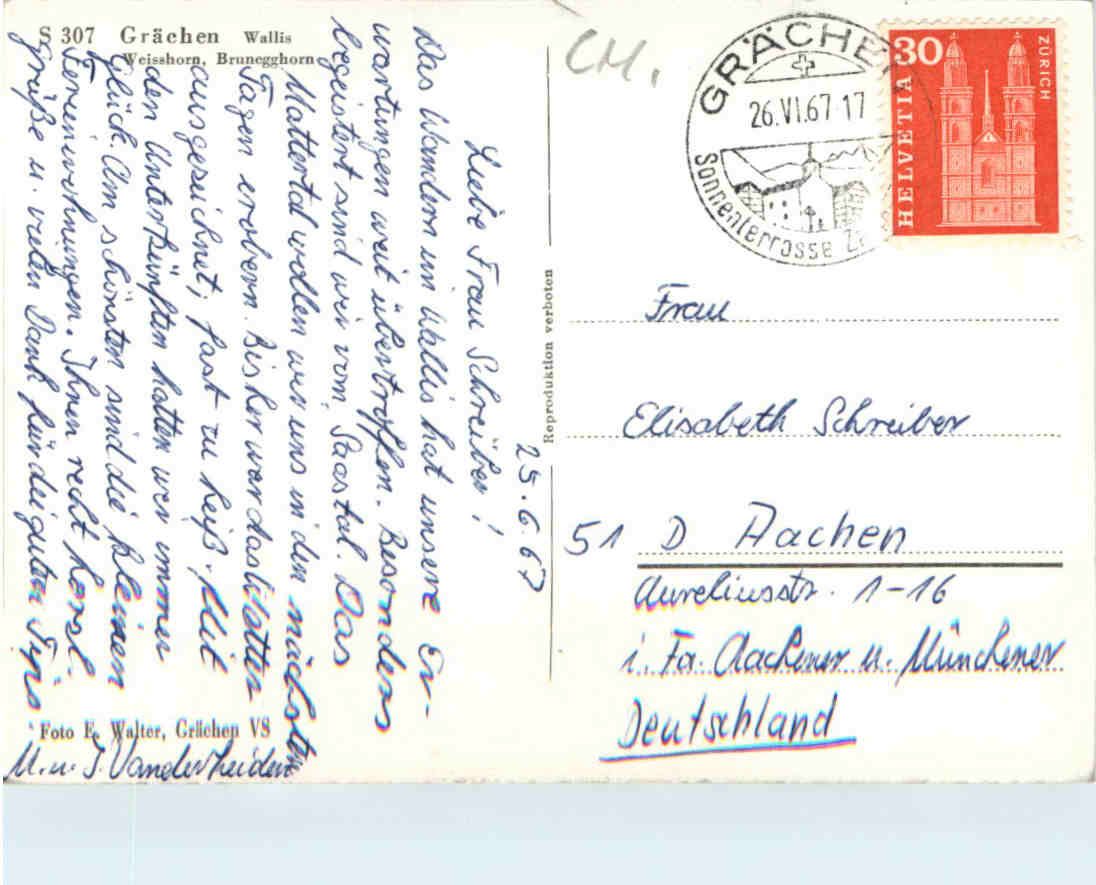 S 307 Grächen Wallis
Weisshorn, Brunegghorn
25.6.67
Liebe Frau Schreiber!
Das Wandern im Wallis hat unsere Er-
wartungen weit übertroffen. Besonders
begeistert sind wir vom Saastal. Das
Mattertal wollen wir uns in den nächsten
Tagen erobern. Bisher war das Wetter
ausgezeichnet, fast zu heiß. Mit
den Unterkünften hatten wir immer
Glück. Am schönsten sind die kleinen
Ferienwohnungen. Ihnen recht herzl.
Grüße u. vielen Dank für die guten Tips
M. u. J. Vanderheiden
Foto E. Walter, Grächen VS
Reproduktion verboten
CH.
GRÄCHEN
26.VI.67-17
Sonnenterrasse
30
HELVETIA
ZÜRICH
Frau
Elisabeth Schreiber
51 D Aachen
Aureliusstr. 1-16
i. Fa. Aachener u. Münchener
Deutschland